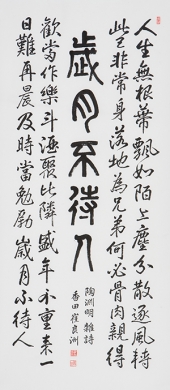 人生無根蔕飄如陌上塵分散逐風轉
此已非常身落地為兄弟何必骨肉親得
歡當作樂斗酒聚比隣盛年不重來一
日難再晨及時當勉勵歲月不待人
歲月不待人
陶淵明 雜詩
香田 崔良洲